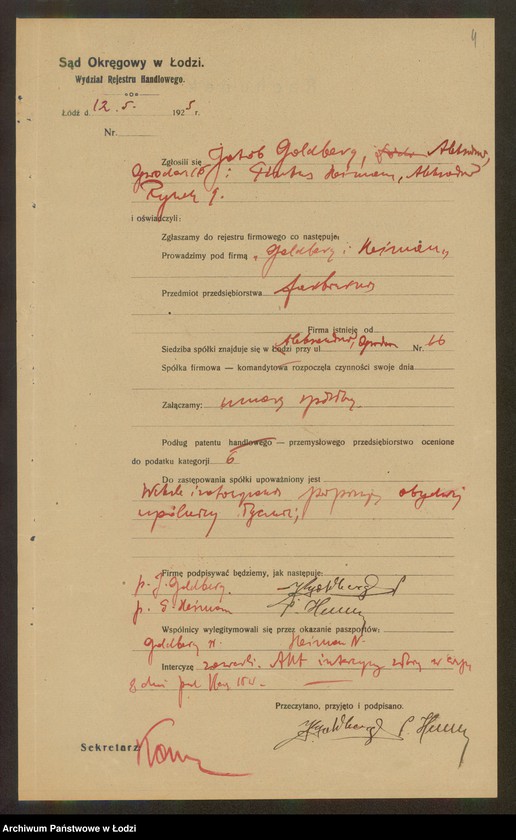 4
Sąd Okręgowy w Łodzi.
Wydział Rejestru Handlowego.
Łódź d 12. 5. 1925 r.
Nr.
Zgłosili się Jakób Goldberg,
i Heiman,
Rynek 9.
i oświadczyli:
Zgłaszamy do rejestru firmowego co następuje:
Prowadzimy pod firmą „Goldberg i Heiman„
Przedmiot przedsiębiorstwa farbiarnia
Firma istnieje od
Siedziba spółki znajduje się w Łodzi przy ul Nr. 16
Spółka firmowa — komandytowa rozpoczęła czynności swoje dnia
Załączamy: umowę spółki
Podług patentu handlowego — przemysłowego przedsiębiorstwo ocenione
do podatku kategorji 6
Do zastępowania spółki upoważniony jest
Weksle i podpisują obydwaj
wspólnicy łącznie;
Firmę podpisywać będziemy, jak następuje:
p. J. Goldberg.
p. Heiman
Wspólnicy wylegitymowali się przez okazanie paszportów:
Goldberg N. Heiman N.
Intercyzę zawarli. Akt intercyzy złożą w ciągu
8 dni
Przeczytano, przyjęto i podpisano.
Sekretarz
Archiwum Państwowe w Łodzi